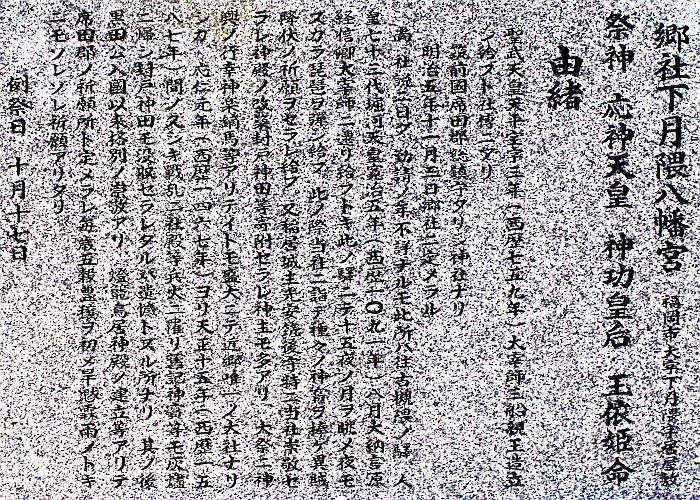 郷社下月隈八幡宮 福岡市大字下月隈字居屋敷
祭神 応神天皇 神功皇后 玉依姫命
由緒
聖武天皇天平宝字三年(西歴七五九年)大宰師三船親王造立
シ給フト社傳ニアリ
筑前國席田郡ノ総鎮守タリシ神社ナリ
明治五年十一月三日郷社ニ定メラル
當社説ニ曰ク、勧請ノ年不詳ナルモ此所ハ往古摸隈ノ驛、人
皇七十三代堀河天皇寛治五年(西歴一〇九一年)八月大納言源
経信卿大宰師ニ遷リ給フトキ此ノ驛ニテ十五夜ノ月ヲ眺メ夜モ
スガラ琵琶ヲ弾シ給フ 此ノ際当社ニ詣デ種々ノ神寶ヲ捧ゲ異賊
降伏ノ祈願ヲセラレ給フ 又稲居城主光安筑後守特ニ当社崇敬セ
ラレ神殿ノ改築封戸神田等寄附セラレ神主モ多アリ、大祭ニ神
輿ノ行幸神楽鏑馬等アリテイトモ盛大ニテ近郷唯一ノ大社ナリ
シガ、応仁元年(西歴一四六七年)ヨリ天正十五年(西歴一五
八七年)間ノ久シキ戦乱ニ社殿等兵火ニ罹リ舊記神寶等モ灰燼
ニ帰シ封戸神田モ没収セラレタルハ遺憾トスル所ナリ。其ノ後
黒田公入國以来格別ノ崇敬アリ 燈籠鳥居神殿ノ建立等アリテ
席田郡ノ祈願所ト定メラレ毎歳五穀豊穣ヲ初メ旱魃霖雨ノトキ
ニモソレゾレ祈願アリタリ
例祭日 十月十七日